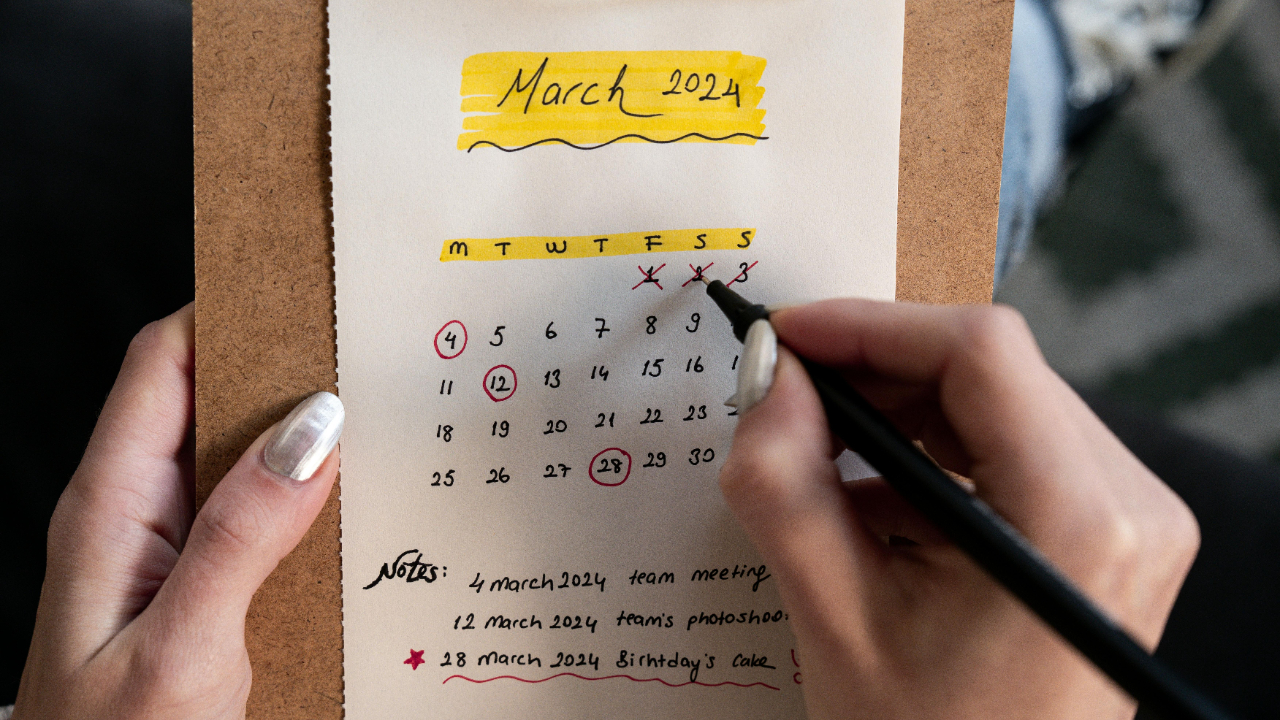 March 2024
M T W T F S S
1 2 3
4 5 6 7 8 9
11 12 13 14 15 16
18 19 20 21 22 23
25 26 27 28 29 30
Notes: 4 march 2024 team meeting
12 march 2024 team's photoshoo
28 march 2024 Birhtday's cake